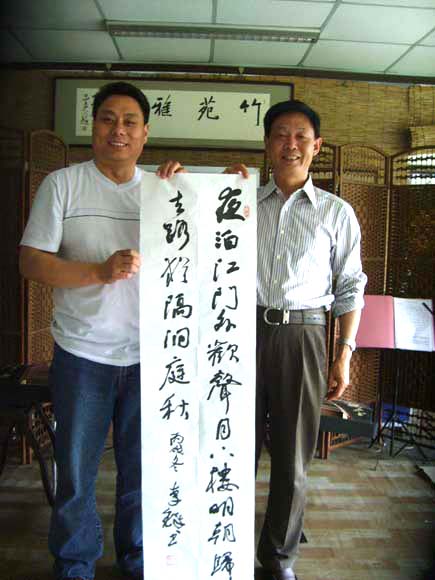 竹苑雅
夜泊江門外歡聲月里樓明朝歸
去路猶隔洞庭秋
丙戌冬 李